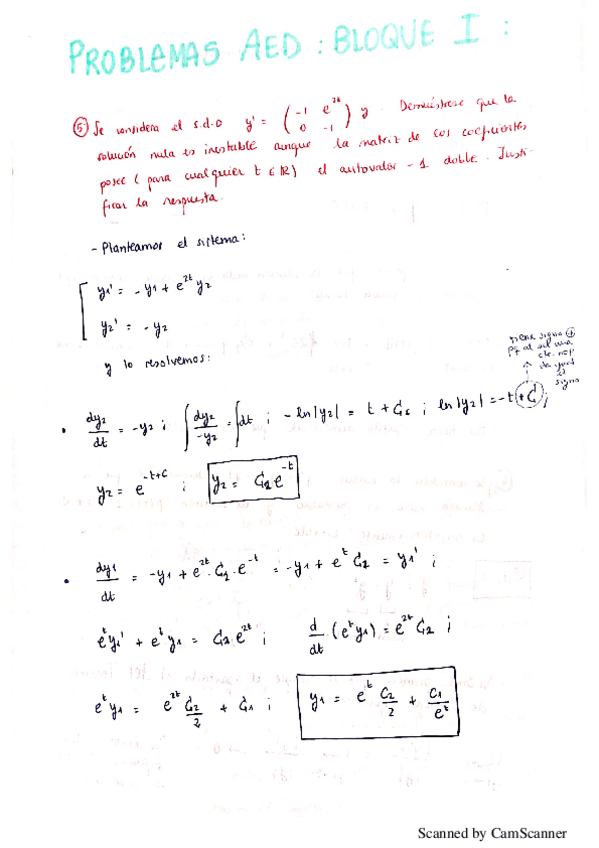 PROBLEMAS AED : BLOQUE I :
⑤ Se considera el s.d.o y' = ( -1 e^{2t} ; 0 -1 ) y . Demuéstrese que la
solución nula es inestable aunque la matriz de los coeficientes
posee ( para cualquier t ∈ ℝ ) el autovalor -1 doble . Justi-
ficar la respuesta.
- Planteamos el sistema:
y1' = - y1 + e^{2t} y2
y2' = - y2
y lo resolvemos:
tiene signo ⊕
al ser una
cte. nos
da igual
el
signo
• dy2/dt = -y2 ; ∫ dy2/-y2 = ∫ dt ; - ln|y2| = t + C ; ln|y2| = -t + C ;
y2 = e^{-t+C} ; y2 = C2 e^{-t}
• dy1/dt = -y1 + e^{2t} · C2 · e^{-t} = -y1 + e^t C2 = y1' ;
e^t y1' + e^t y1 = C2 e^{2t} ; d/dt (e^t y1) = e^{2t} C2 ;
e^t y1 = e^{2t} C2/2 + C1 ; y1 = e^t C2/2 + C1/e^t
Scanned by CamScanner